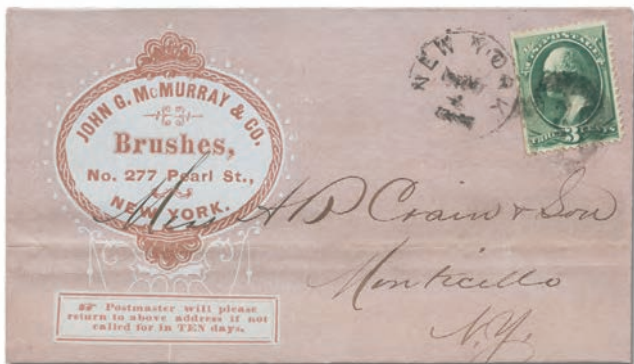 JOHN G. McMURRAY & CO.
Brushes,
No. 277 Pearl St.,
NEW YORK.
☞ Postmaster will please
return to above address if not
called for in TEN days.
NEW YORK
U.S. POSTAGE
THREE 3 CENTS
A P Crain & Son
Monticello
N.Y.